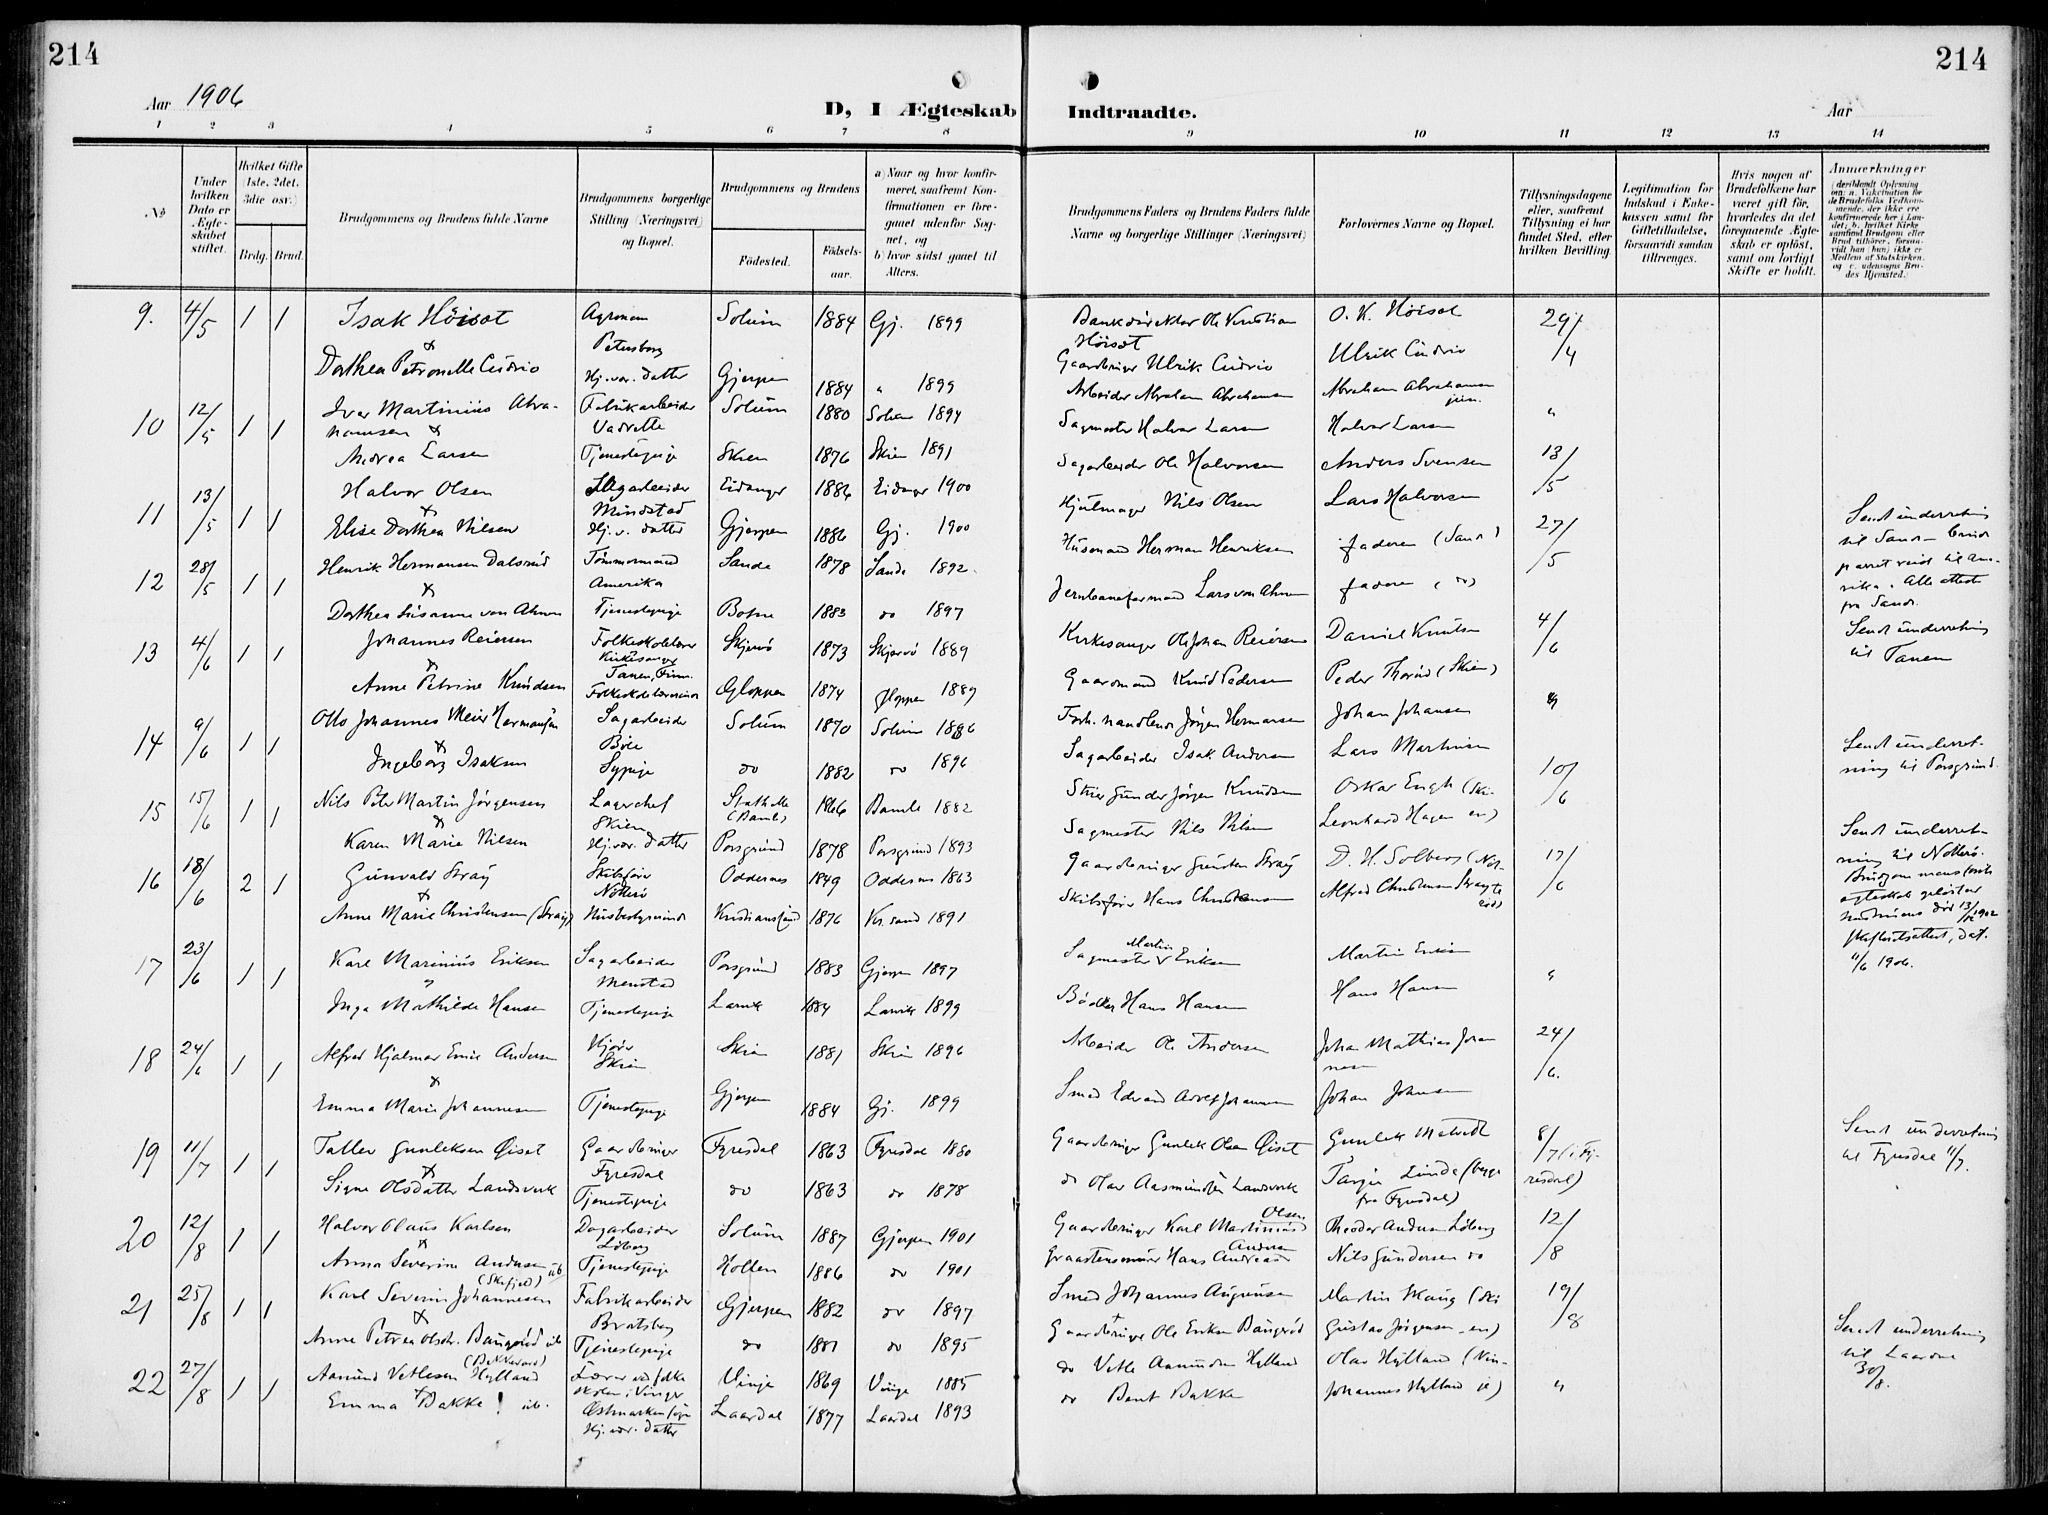 214
214
Aar 1906
D, I Ægteskab Indtraadte.
Aar
1 2 3 4 5 6 7 8 9 10 11 12 13 14
No
Under hvilken Dato er Ægteskabet stiftet.
Hvilket Gifte (1ste, 2det, 3die osv.)
Brdg. Brud.
Brudgommens og Brudens fulde Navne
Brudgommens borgerlige Stilling (Næringsvei) og Bopæl.
Brudgommens og Brudens
Fødested.
Fødselsaar.
a) Naar og hvor konfirmeret, saafremt Konfirmationen er foregaaet udenfor Sognet, og
b) hvor sidst gaaet til Alters.
Brudgommens Faders og Brudens Faders fulde Navne og borgerlige Stillinger (Næringsvei)
Forlovernes Navne og Bopæl.
Tillysningsdagene eller, saafremt Tillysning ei har fundet Sted, efter hvilken Bevilling
Legitimation for Indskud i Enkekassen samt for Giftetilladelse, forsaavidt saadan tiltrænges.
Hvis nogen af Brudefolkene har været gift før, hvorledes da det foregaaende Ægteskab er opløst, samt om lovligt Skifte er holdt.
Anmærkninger
9. 4/5 1 1 Isak Höisæt Agronom Solum 1884 Gj. 1899 Bankdirektør Ole Kristian O. K. Höisæt 29/4
& Petersborg Höisæt
Dorthea Petronelle Cudrio Hj. vær. datter Gjerpen 1884 " 1899 Gaardbruger Ulrik Cudrio Ulrik Cudrio
10 12/5 1 1 Iver Martinius Abra- Fabrikarbeider Solum 1880 Solum 1894 Arbeider Abraham Abrahamsen Abraham Abrahamsen jun. "
hamsen & Vadrette
Andrea Larsen Tjenestepige Skien 1876 Skien 1891 Sagmester Halvor Larsen Halvor Larsen
11 13/5 1 1 Halvor Olsen Sagarbeider Eidanger 1886 Eidanger 1900 Sagarbeider Ole Halvorsen Anders Svensen 13/5
& Menstad
Elise Dorthea Nilsen Hj. v. datter Gjerpen 1886 Gj. 1900 Hjulmager Nils Olsen Lars Halvorsen
12 28/5 1 1 Henrik Hermansen Dalsrud Tømmermand Sande 1878 Sande 1892. Husmand Herman Henriksen faderen (Sande) 27/5 Sendt underretning
& Amerika
Dorthea Susanne von Ahnen Tjenestepige Botne 1883 do 1897 Jernbaneformand Lars von Ahnen faderen (do)
13 4/6 1 1 Johannes Reiersen Folkeskolelærer Skjervö 1873 Skjervö 1889 Kirkesanger Ole Johan Reiersen Daniel Knutsen 4/6 Sendt underretning
& Kirkesanger Tanen, Finm. til Tanen
Anne Petrine Knudsen Folkeskolelærerinde Gloppen 1874 Gloppen 1889 Gaardmand Knud Pedersen Peder Thorud (Skien)
14 9/6 1 1 Otto Johannes Meier Hermansen Sagarbeider Solum 1870 Solum 1886 Forh. handlende Jørgen Hermansen Johan Johansen "
& Böle
Ingeborg Isaksen Sypige do 1882 do 1896 Sagarbeider Isak Andersen Lars Martinsen
15 15/6 1 1 Nils Peter Martin Jörgensen Lagerchef Stathelle (Bamle) 1866 Bamle 1882 Jørgen Knudsen Oskar Engh (Ski- 10/6 Sendt underret-
& Skien ning til Porsgrund.
Karen Marie Nilsen Hj. vær. datter Porsgrund 1878 Porsgrund 1893 Sagmester Nils Nilsen Leonhard Hagen en)
16 18/6 2 1 Gunvald Stray Skibsfører Oddernes 1849 Oddernes 1863 Gaardbruger Gunsten Stray D. H. Solberg (Not- 17/6 Sendt underret-
& Nötterö ning til Nötterö.
Anne Marie Christensen (Stray) Husbestyrerinde Kristiansand 1876 Kr.sand 1891 Skibsfører Hans Christensen Alfred Christensen Stray
17 23/6 1 1 Karl Marinius Eriksen Sagarbeider Porsgrund 1883 Gjerpen 1897 Sagmester Martin Eriksen Martin Eriksen "
" Menstad 11/6 1906.
Inga Mathilde Hansen Tjenestepige Larvik 1884 Larvik 1899 Bödker Hans Hansen Hans Hansen
18 24/6 1 1 Alfred Hjalmar Emil Andersen Kjører Skien 1881 Skien 1896 Arbeider Ole Andersen Johan Mathias Johan- 24/6.
& Skien nesen
Emma Marie Johannesen Tjenestepige Gjerpen 1884 Gj. 1899 Smed Edvard Adolf Johannesen Johan Johansen
19 11/7 1 1 Tallev Gunleksen Öiset Gaardbruger Fyresdal 1863 Fyresdal 1880 Gaardbruger Gunlek Olsen Öiset Gunlek Metvedt 8/7 (i Fy- Sendt underretning
& Fyresdal resdal) til Fyresdal 11/7.
Signe Olsdatter Landsverk Tjenestepige do 1863 do 1878 do Olav Aasmundsen Landsverk Tarjei Linde (begge fra Fyresdal)
20 12/8 1 1 Halvor Olaus Karlsen Dagarbeider Solum 1887 Gjerpen 1901 Gaardbruger Karl Martinius Olsen Theodor Andersen Löberg 12/8
& Löberg
Anna Severine Andersen ub Tjenestepige Hollen 1886 do 1901 Graastensminør Hans Andreas Andersen Nils Gundersen do
21 25/8 1 1 Karl Severin Johannesen Fabrikarbeider Gjerpen 1882 do 1897 Smed Johannes Augensen Martin Skaug (Ski 19/8
& Bratsberg
Anne Petrea Olsdr. Baugerød ub Tjenestepige do 1881 do 1895 Gaardbruger Ole Eriksen Baugerød Gustav Jörgensen en)
22 27/8 1 1 Aamund Vetlesen Hylland Lærer ved folke- Vinje 1869 Vinje 1885 do Vetle Aamundsen Hylland Olav Hylland (Vin- Sendt underretning
(Bakkevold) skolen i Vinger til Laardal
Emma Bakke ub. Laardal 1877 Laardal 1893 do Bent Bakke Johannes Hylland je) " 30/8.
Hj. vær. datter